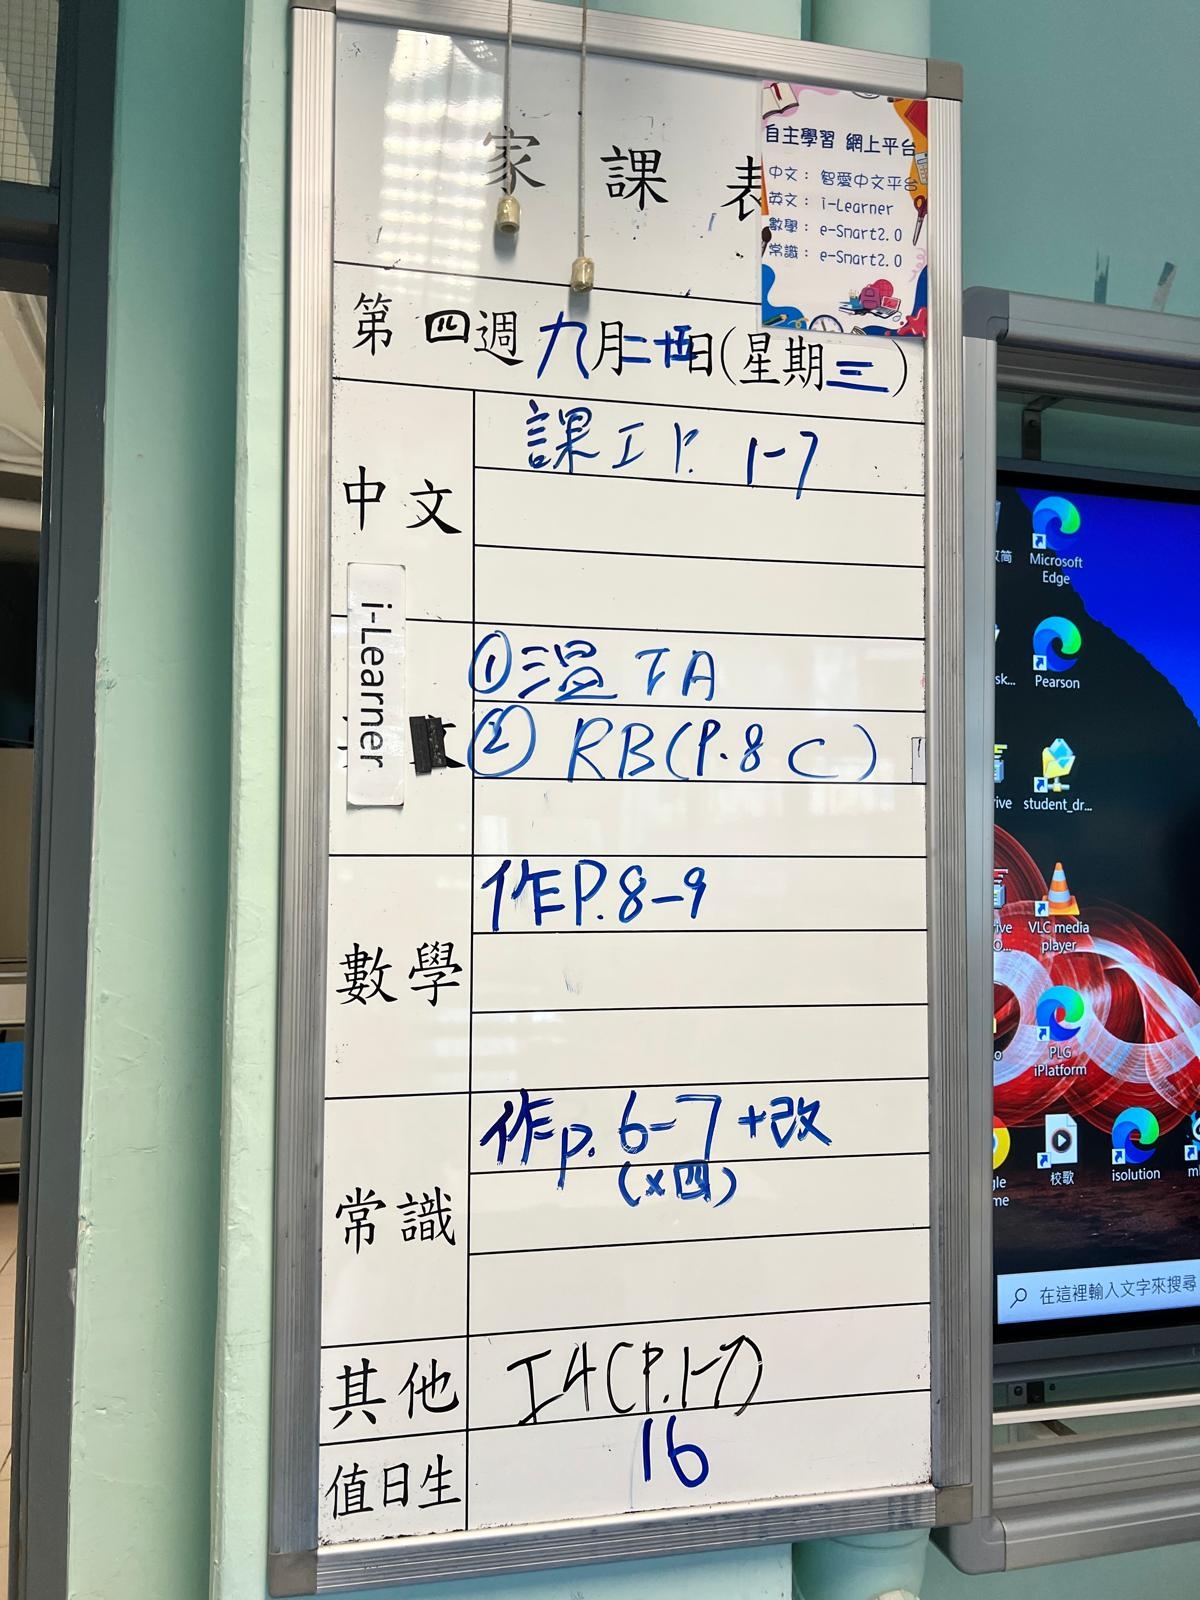 家課表
自主學習 網上平台
中文： 智愛中文平台
英文： i-Learner
數學： e-Smart2.0
常識： e-Smart2.0
第四週九月二十四日(星期三)
中文
課工P. 1-7
i-Learner
文
①溫 TA
② RB(P.8 C)
數學
作P.8-9
常識
作p. 6-7 +改
(x四)
其他
工4(P.1-7)
值日生
16
Microsoft
Edge
sk...
Pearson
rive
student_dr...
rive
O...
VLC media
player
o
PLG
iPlatform
gle
me
校歌
isolution
在這裡輸入文字來搜尋